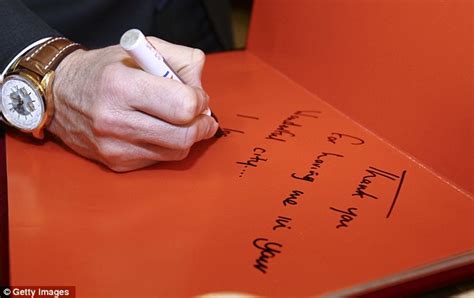 Thank you
for having me in your
Wonderful city....
I
© Getty Images